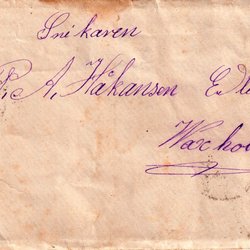 Snikaren
P. A, Håkanson E
Waxho